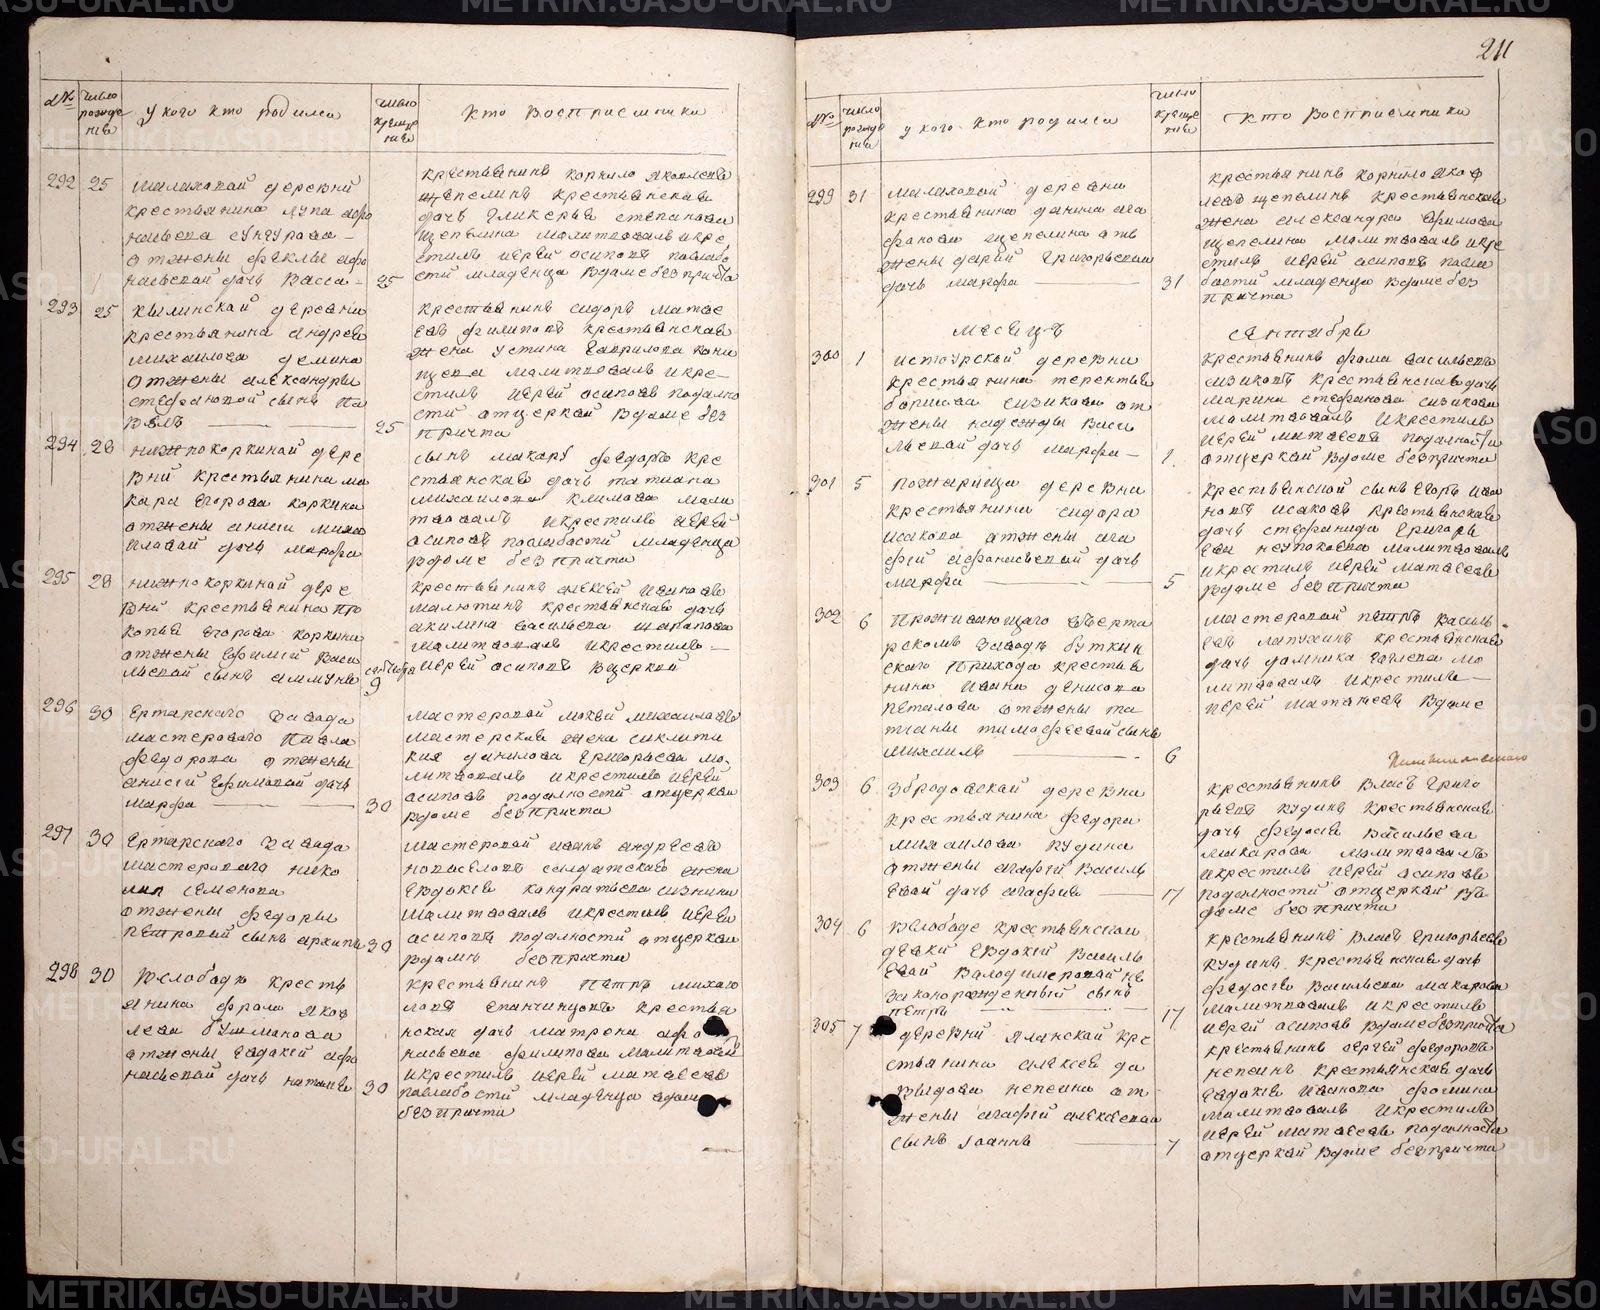 211
№
число рожде ния
у кого кто родился
число креще ния
кто восприемники
292 25
малаховой деревни
крестьянина лупа афо
насьева сунгурова
отжены феклы афо
насьевой дочь васса
25
крестьянинъ корнило яковлевъ
щепелинъ крестьянская
дочь гликерья степанова
щепелина молитвовалъ икре
стилъ иерей осиповъ послабо
сти младенца вдоме безпричта
293 25
крестьянина андрея
михаилова демина
отжены александры
стефановой сынъ па
велъ
25
крестьянинъ сидоръ матве
евъ филиповъ крестьянская
жена устина гаврилова
молитвовалъ икре
стилъ иерей осиповъ подално
сти отцеркви вдоме без
причта
294 28
нижнокоркиной дере
вни крестьянина ма
кара егорова коркина
отжены анисьи михаи
ловой дочь марфа
сынъ макара федоръ кре
стьянская дочь татиана
михаилова климова моли
твовалъ икрестилъ иерей
осиповъ послабости младенца
вдоме безпричта
295 28
нижнокоркиной дере
вни крестьянина про
копья егорова коркина
отжены ефимьи васи
льевой сынъ
сентября
9
крестьянинъ алексей ивановъ
малютинъ крестьянская дочь
акилина васильева шарапова
молитвовалъ икрестилъ
иерей осиповъ вцеркви
296 30
ертарского завода
мастероваго павла
федорова отжены
анисьи ефимовой дочь
марфа
30
мастеровой мокей михаиловъ
мастерская жена
данилова григорьева мо
литвовалъ икрестилъ иерей
осиповъ подалности отцеркви
вдоме безпричта
297 30
ертарского завода
мастероваго нико
лая семенова
отжены федоры
петровой сынъ архипъ
30
мастеровой иванъ андреевъ
новоселовъ солдатская жена
евдокия кондратьева
молитвовалъ икрестилъ иерей
осиповъ подалности отцеркви
вдоме безпричта
298 30
вслободе кресть
янина фрола яков
лева бушманова
отжены евдокеи афо
насьевой дочь наталья
30
крестьянинъ петръ михаи
ловъ крестья
нская дочь матрена афо
насьева филипова молитвовалъ
икрестилъ иерей матвеевъ
послабости младенца вдоме
безпричта
№
число рожде ния
у кого кто родился
число креще ния
кто восприемники
299 31
малаховой деревни
крестьянина данила ага
фонова щепелина отъ
жены дарьи григорьевой
дочь марфа
31
крестьянинъ корнило яков
левъ щепелинъ крестьянская
жена александра ефимова
щепелина молитвовалъ икре
стилъ иерей осиповъ посла
бости младенца вдоме без
причта
месецъ сентябрь
300 1
истоурской деревни
крестьянина терентья
борисова сизикова от
жены надежды васи
льевой дочь марфа
1
крестьянинъ фома васильевъ
сизиковъ крестьянская дочь
марина стефанова сизикова
молитвовалъ икрестилъ
иерей матвеевъ подалности
отцеркви вдоме безпричта
301 5
пожарища деревни
крестьянина сидора
исакова отжены ага
фьи афонасьевой дочь
марфа
5
крестьянской сынъ егоръ ива
новъ исаковъ крестьянская
дочь стефанида григорь
ева неупокоева молитвовалъ
икрестилъ иерей матвеевъ
вдоме безпричта
302 6
проживающаго въерта
рскомъ заводе буткин
ского прихода крестья
нина ивана денисова
петалова отжены та
тианы тимофеевой сынъ
михаилъ
6
мастеровой петръ василь
евъ лапухинъ крестьянская
дочь домника евлева мо
литвовалъ икрестилъ
иерей матвеевъ вдоме
303 6
крестьянина федора
михаилова кудина
отжены агафьи василь
евой дочь агафья
17
крестьянинъ власъ григо
рьевъ кудинъ крестьянская
дочь федосья васильева
макарова молитвовалъ
икрестилъ иерей осиповъ
подалности отцеркви въ
доме безпричта
304 6
вслободе крестьянской
девки евдокеи василь
евой валодимеровой не
законорожденный сынъ
петръ
17
крестьянинъ власъ григорьевъ
кудинъ крестьянская дочь
федосья васильева макарова
молитвовалъ икрестилъ
иерей осиповъ вдоме безпричта
305 7
деревни яланской кре
стьянина алексея да
выдова непеина от
жены агафьи алексеевой
сынъ иоаннъ
7
крестьянинъ сергей федоровъ
непеинъ крестьянская дочь
евдокия иванова фомина
молитвовалъ икрестилъ
иерей матвеевъ подалности
отцеркви вдоме безпричта
METRIKI.GASO-URAL.RU